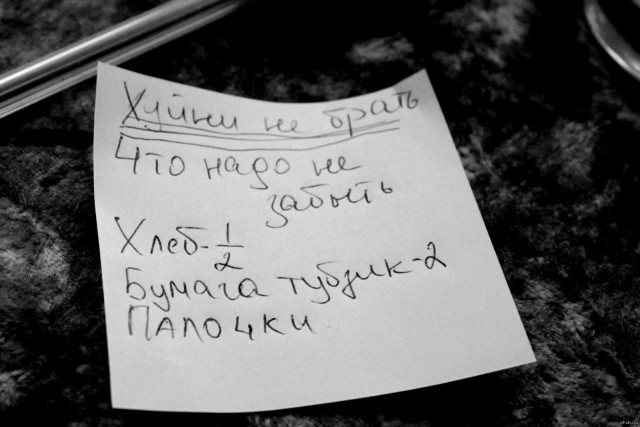 Хуйни не брать
Что надо не
забыть
Хлеб-1/2
Бумага тубзик-2
Палочки